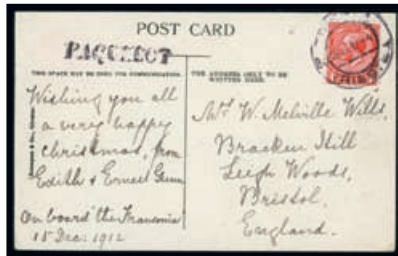 POST CARD
PAQUEBOT
THIS SPACE MAY BE USED FOR COMMUNICATION.
THE ADDRESS ONLY TO BE
WRITTEN HERE.
Wishing you all
a very happy
christmas, from
Edith & Ernest
On board the "Franconia"
15 Dec. 1912
W. Melville Wills,
Bracken Hill
Leigh Woods,
Bristol,
England.